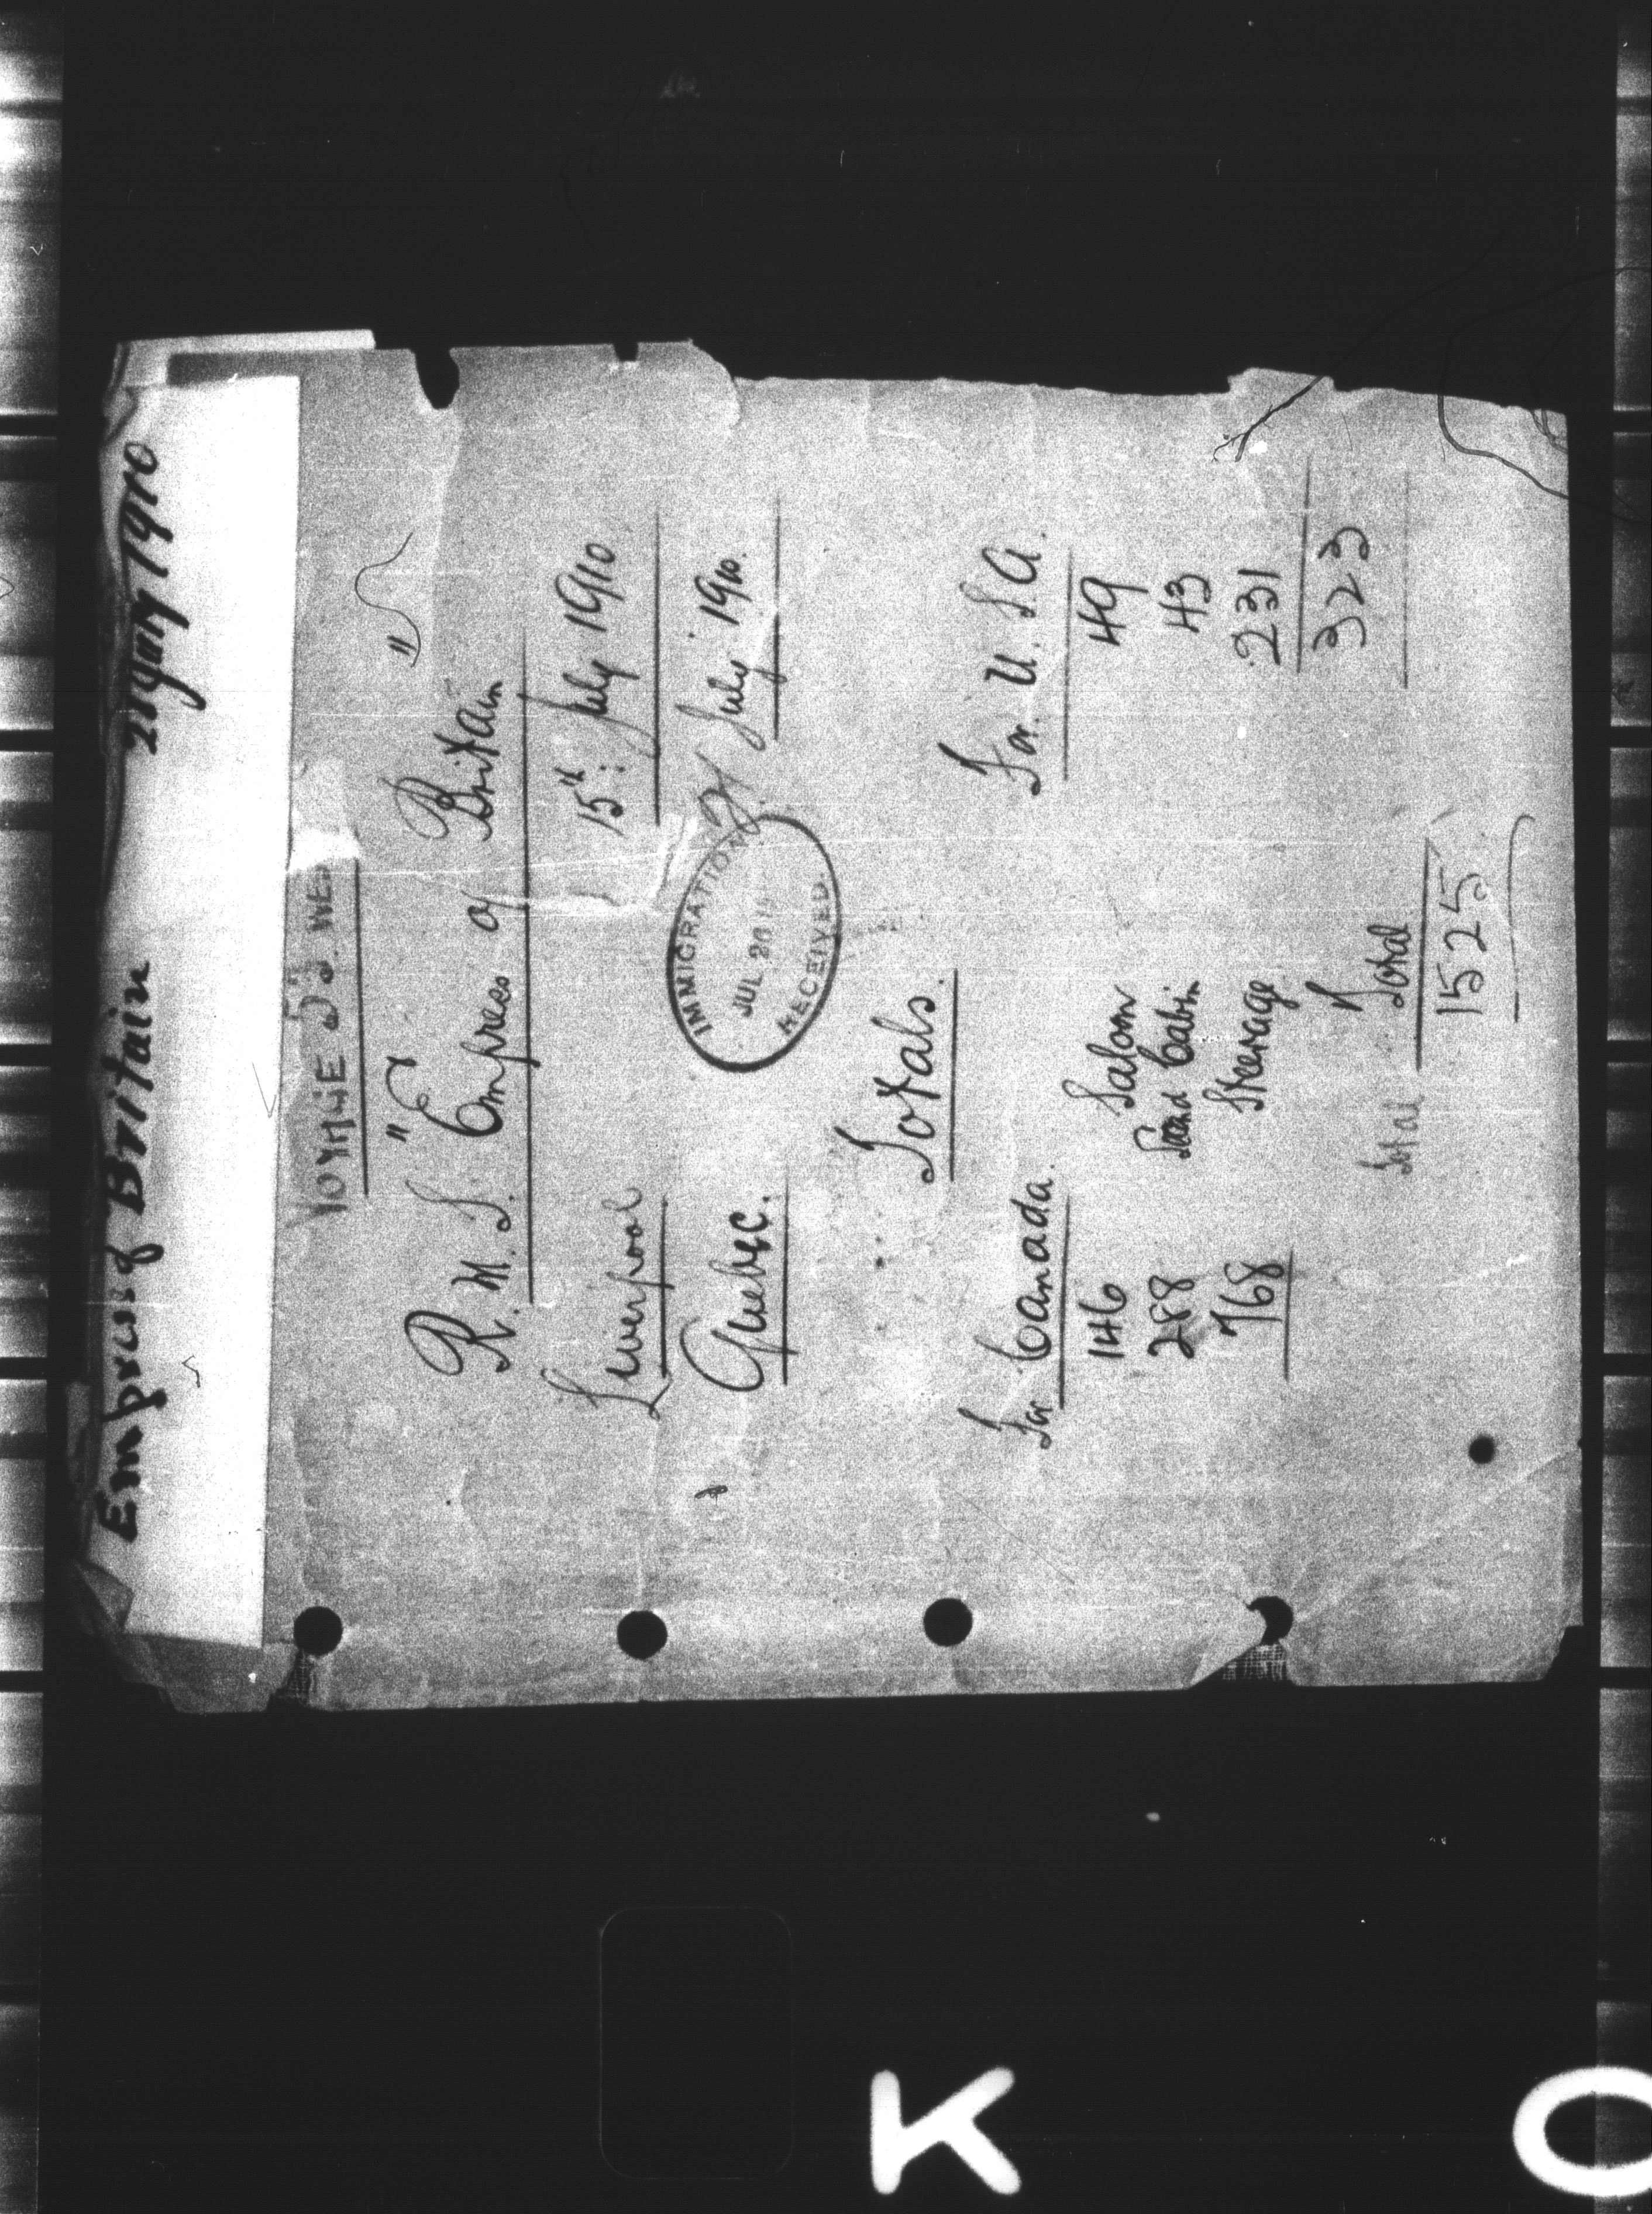 Empress of Britain 21 July 1910
VOYAGE 53. WE
R. M. S. "Empress of Britain"
Liverpool 15th July 1910
Quebec. 21 July 1910.
IMMIGRATION
JUL 20 1910
RECEIVED.
Totals.
For Canada. For U. S. A.
146 Saloon 49
288 Second Cabin 43
768 Steerage 231
323
Total Total
1525
K